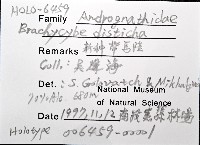 HOLO-6459
Family Andrognathidae
Brachycybe disticha
Remarks 新種 竹馬陸
Coll.: 吳 海
Det.: S. Golovatch & Mikhaljova
70% Alc 680m
National Museum of Natural Science
Date 1997.11.12
Holotype 006459-00001